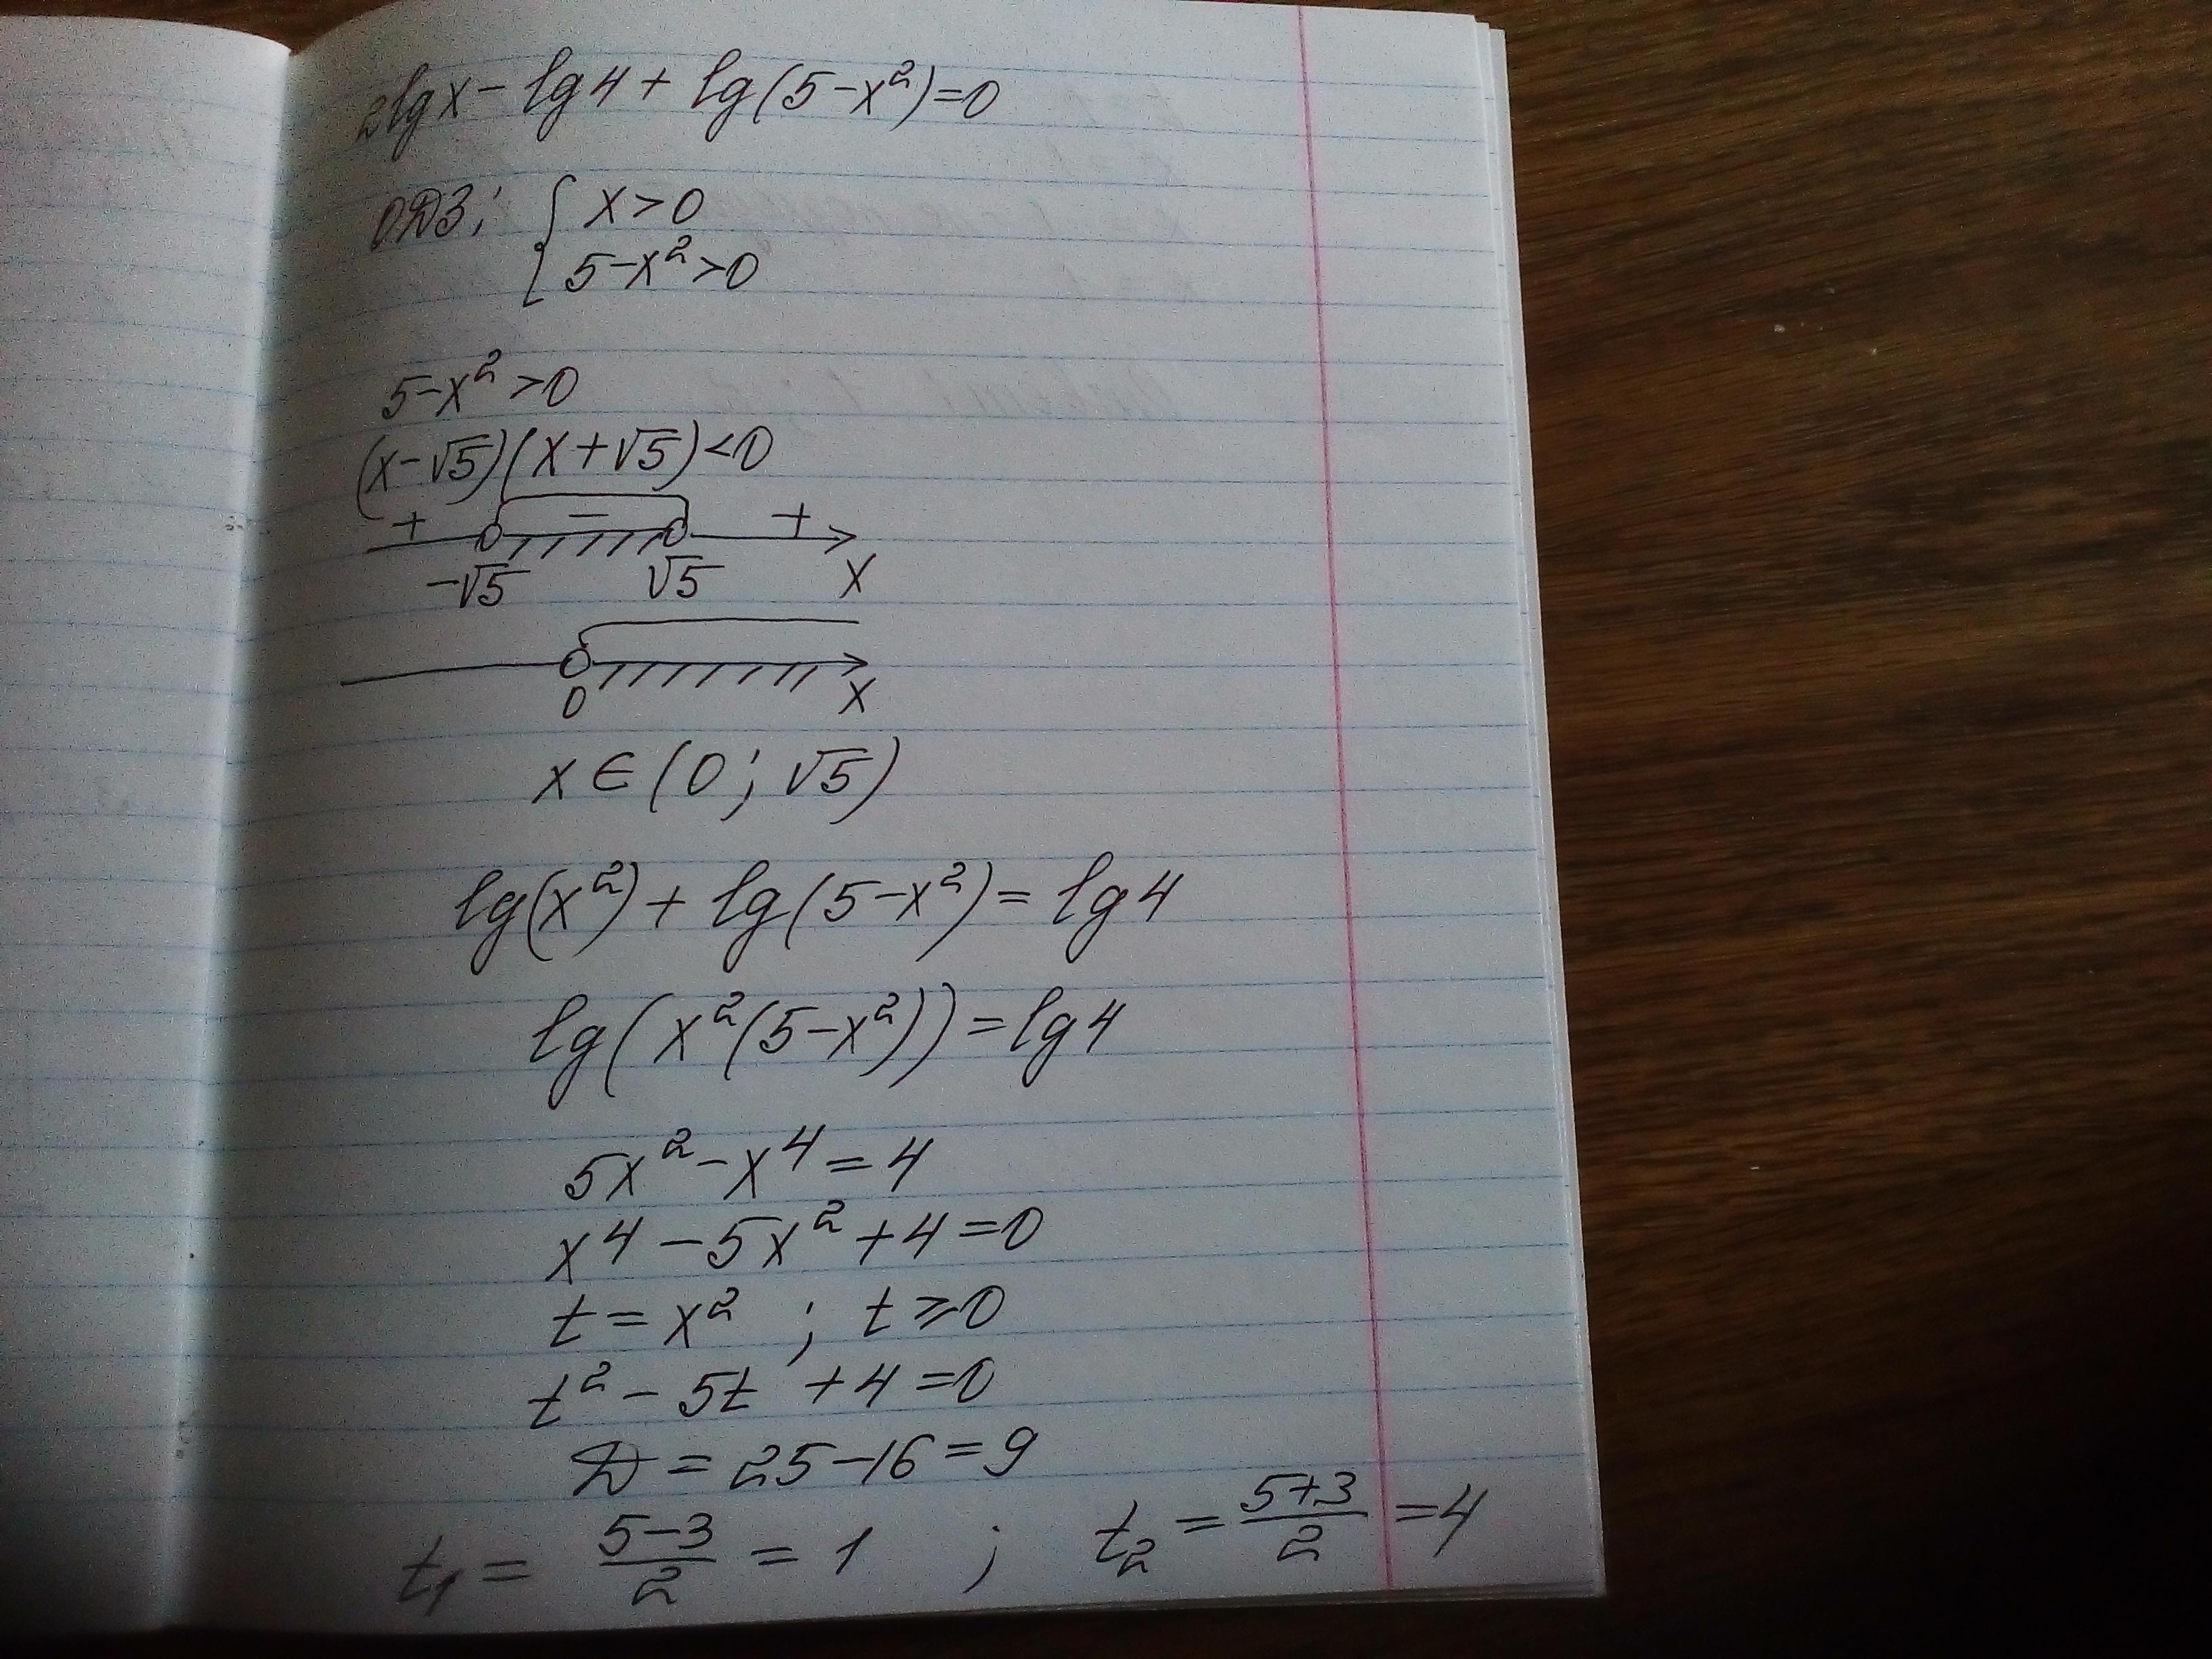 2lgx - lg4 + lg(5-x²)=0
ОДЗ: { x>0
5-x²>0
5-x²>0
(x-√5)(x+√5)<0
+ - +
-√5 √5 x
0 x
x∈(0; √5)
lg(x²) + lg(5-x²) = lg4
lg(x²(5-x²)) = lg4
5x²-x⁴=4
x⁴-5x²+4=0
t=x² ; t≥0
t²-5t +4=0
D = 25-16=9
t₁ = (5-3)/2 = 1 ; t₂ = (5+3)/2 = 4